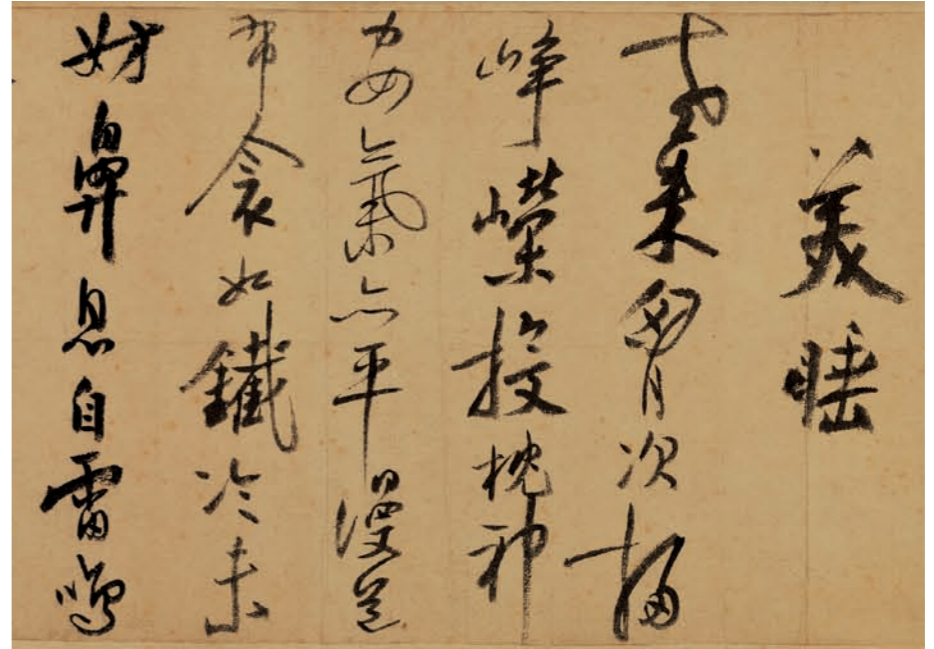 美睡
老來胷次掃
崢嶸投枕神
安氣亦平漫道
布衾如鐵冷未
妨鼻息自雷鳴